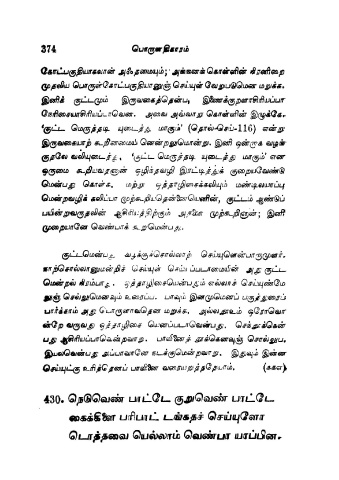 374 பொருளதிகாரம்
கோட்பகுதியாகலான் அஃதமையும்; அங்கனங் கொள்ளின் கிரனிறை
முதலிய பொருள்கோட்பகுதியானுஞ் செய்யுள் வேறுபடுமென மறுக்க.
இனிக் குட்டமும் இருவகைத்தென்ப, இணைக்குறளாசிரியப்பா
நேரிசையாசிரியப்பாவென. அவை அவ்வாறு கொள்ளின் இழுக்கே.
'குட்ட மெருத்தடி யுடைத்து மாகும்' (தொல்-செய்-116) என்று
இருவகையாற் கூறினமைய் னென்றலுமொன்று. இனி ஒன்றாக வழங்
குதலே வலியுடைத்து, 'குட்ட மெருத்தடி யுடைத்து மாகும்' என
ஒருமை கூறியவதனான் ஒழிந்தவழி இரட்டித்துக் குறையவேண்டு
மென்பது கொள்க. மற்று ஒத்தாழிசைக்கலியும் மண்டிலயாப்பு
மென்றவழிக் கலிப்பா முற்கூறியதென்னையெனின், குட்டம் ஆண்டுப்
பயின்றவருதலின் ஆசிரியத்திற்கும் அதனே முற்கூறினான்; இனி
முறையானே வெண்பாக் கூறுமென்பது.
குட்டமென்பது வழக்குச்சொல்லாற் செய்யுளென்பாருமுளர்.
நாற்சொல்லானுமன்றிச் செய்யுள் செய்யப்படாமையின் அது குட்ட
மென்றல் கிரம்பாது. ஒத்தாழிசையென்பதும் எல்லாச் செய்யுண்மே
லுஞ் செல்லுமெனவும் உரைப்ப. பாவும் இனமுமெனப் பகுத்துரைப்
பார்க்காம் அது பொருளாவதென மறுக்க. அல்லதூஉம் ஒரோவொ
ன்றே வருவது ஒத்தாழிசை யெனப்படாவென்பது. செந்தூக்கென்
பது ஆசிரியப்பாவென்றவாறு. பாவினைத் தூக்கெனவுஞ் சொல்லுப,
இயலவென்பது அப்பாவானே நடக்குமென்றவாறு. இதுவும் இன்ன
செய்யுட்கு உரித்தெனப் பாவினை வரையறுத்ததேயாம். (ககள)
430. நெடுவெண் பாட்டே குறுவெண் பாட்டே
கைக்கிளை பரிபாட் டங்கதச் செய்யுளோ
டொத்தவை யெல்லாம் வெண்பா யாப்பின.